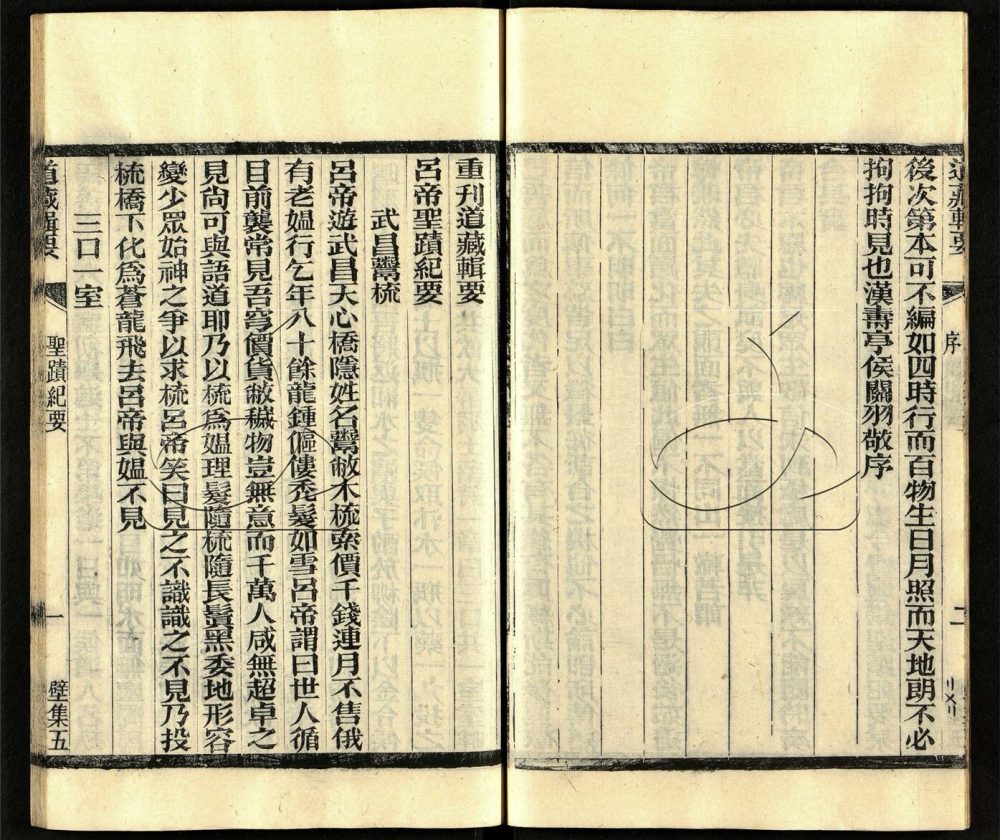 道藏輯要
序
二
後次第本可不編如四時行而百物生日月照而天地朗不必
拘拘時見也漢壽亭侯關羽敬序
重刊道藏輯要
呂帝聖蹟紀要
武昌鬻梳
呂帝遊武昌大心橋隱姓名鬻敝木梳索價千錢連月不售俄
有老媼行乞年八十餘龍鍾傴僂禿髮如雪呂帝謂曰世人循
目前襲常見吾穹價貨敝穢物豈無意而千萬人咸無超卓之
見尚可與語道耶乃以梳爲媼理髮隨梳隨長鬒黑委地形容
變少眾始神之爭以求梳呂帝笑曰見之不識識之不見乃投
梳橋下化爲蒼龍飛去呂帝與媼不見
三口一室
道藏輯要
聖蹟紀要
一
壁集五